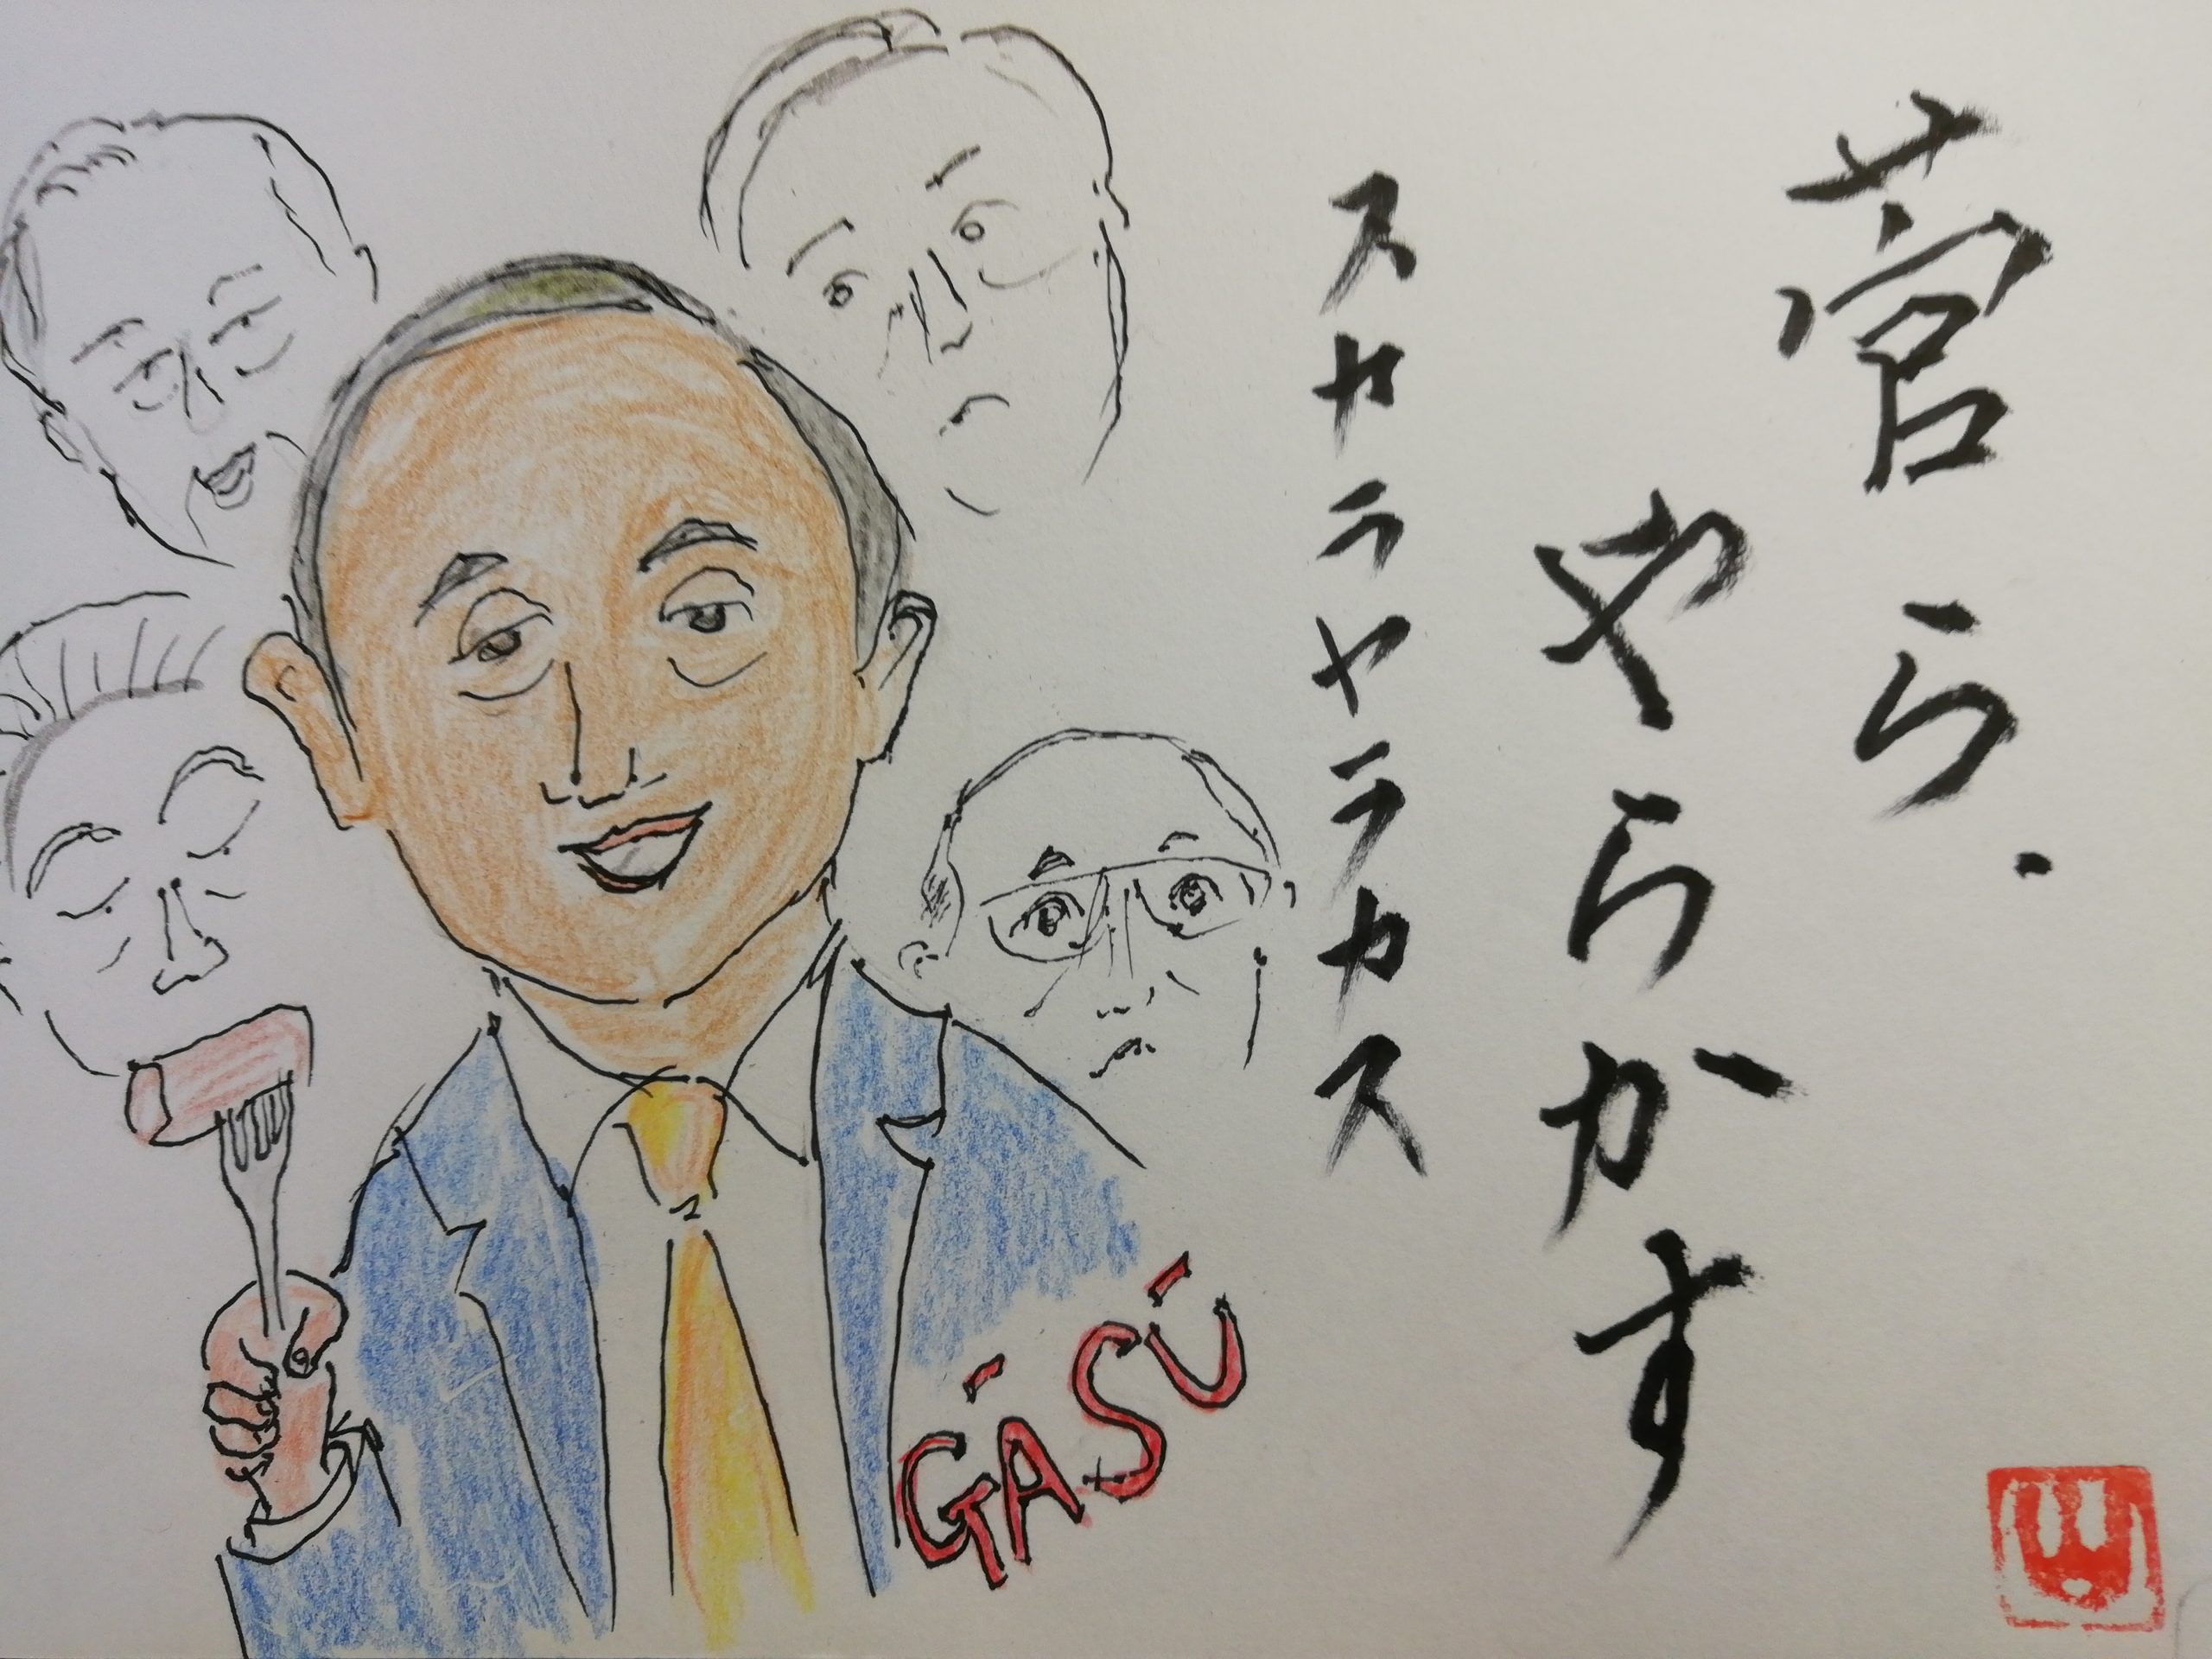 菅ら.
やらかす
スカラヤラカス
GĀSŪ
山